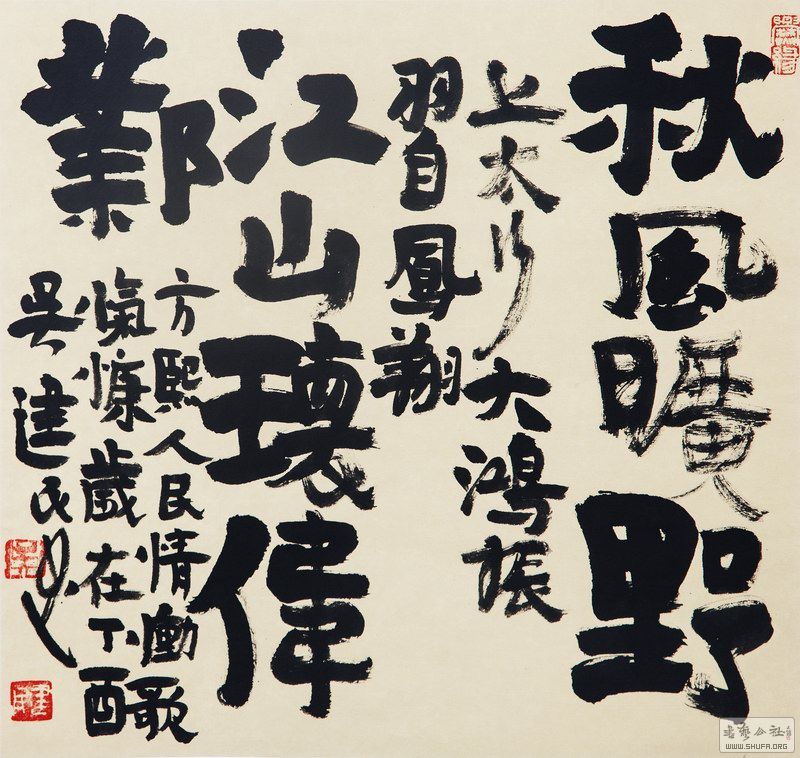 秋風曠野
上太行大鴻振
羽自鳳翔
江山瓌偉
鄴
方熙人民情慟歌
愾慷歲在丁酉
吳建民書
WWW.SHUFA.ORG